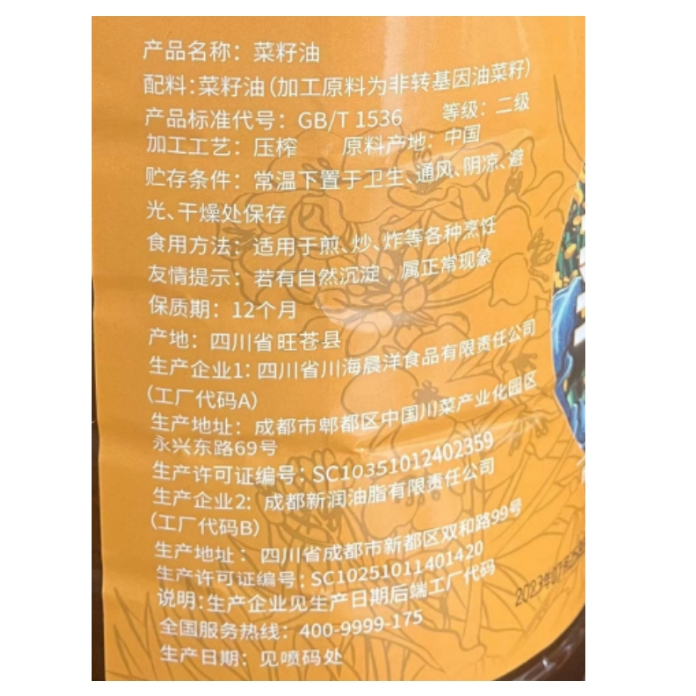 产品名称：菜籽油
配料：菜籽油（加工原料为非转基因油菜籽）
产品标准代号：GB/T 1536 等级：二级
加工工艺：压榨 原料产地：中国
贮存条件：常温下置于卫生、通风、阴凉、避
光、干燥处保存
食用方法：适用于煎、炒、炸等各种烹饪
友情提示：若有自然沉淀，属正常现象
保质期：12个月
产地：四川省旺苍县
生产企业1：四川省川海晨洋食品有限责任公司
（工厂代码A）
生产地址：成都市郫都区中国川菜产业化园区
永兴东路69号
生产许可证编号：SC10351012402359
生产企业2：成都新润油脂有限责任公司
（工厂代码B）
生产地址：四川省成都市新都区双和路99号
生产许可证编号：SC10251011401420
说明：生产企业见生产日期后端工厂代码
全国服务热线：400-9999-175
生产日期：见喷码处
2023年07